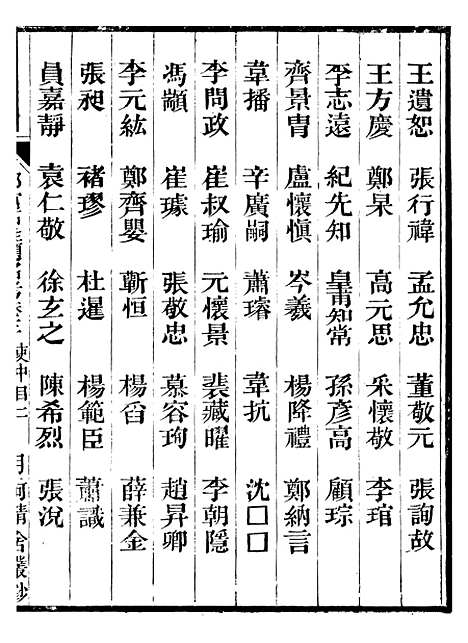 王遺恕 張行禕 孟允忠 董敬元 張詢故
王方慶 鄭杲 高元思 采懷敬 李琯
李志遠 紀先知 皇甫知常 孫彥高 顧琮
齊景冑 盧懷慎 岑羲 楊降禮 鄭納言
韋播 辛廣嗣 蕭璿 韋抗 沈□□
李問政 崔叔瑜 元懷景 裴藏曜 李朝隱
馮顓 崔璩 張敬忠 慕容珣 趙昇卿
李元紘 鄭齊嬰 靳恒 楊㫖 薛兼金
張昶 褚璆 杜暹 楊範臣 蕭識
員嘉靜 袁仁敬 徐玄之 陳希烈 張況
月河精舍叢鈔